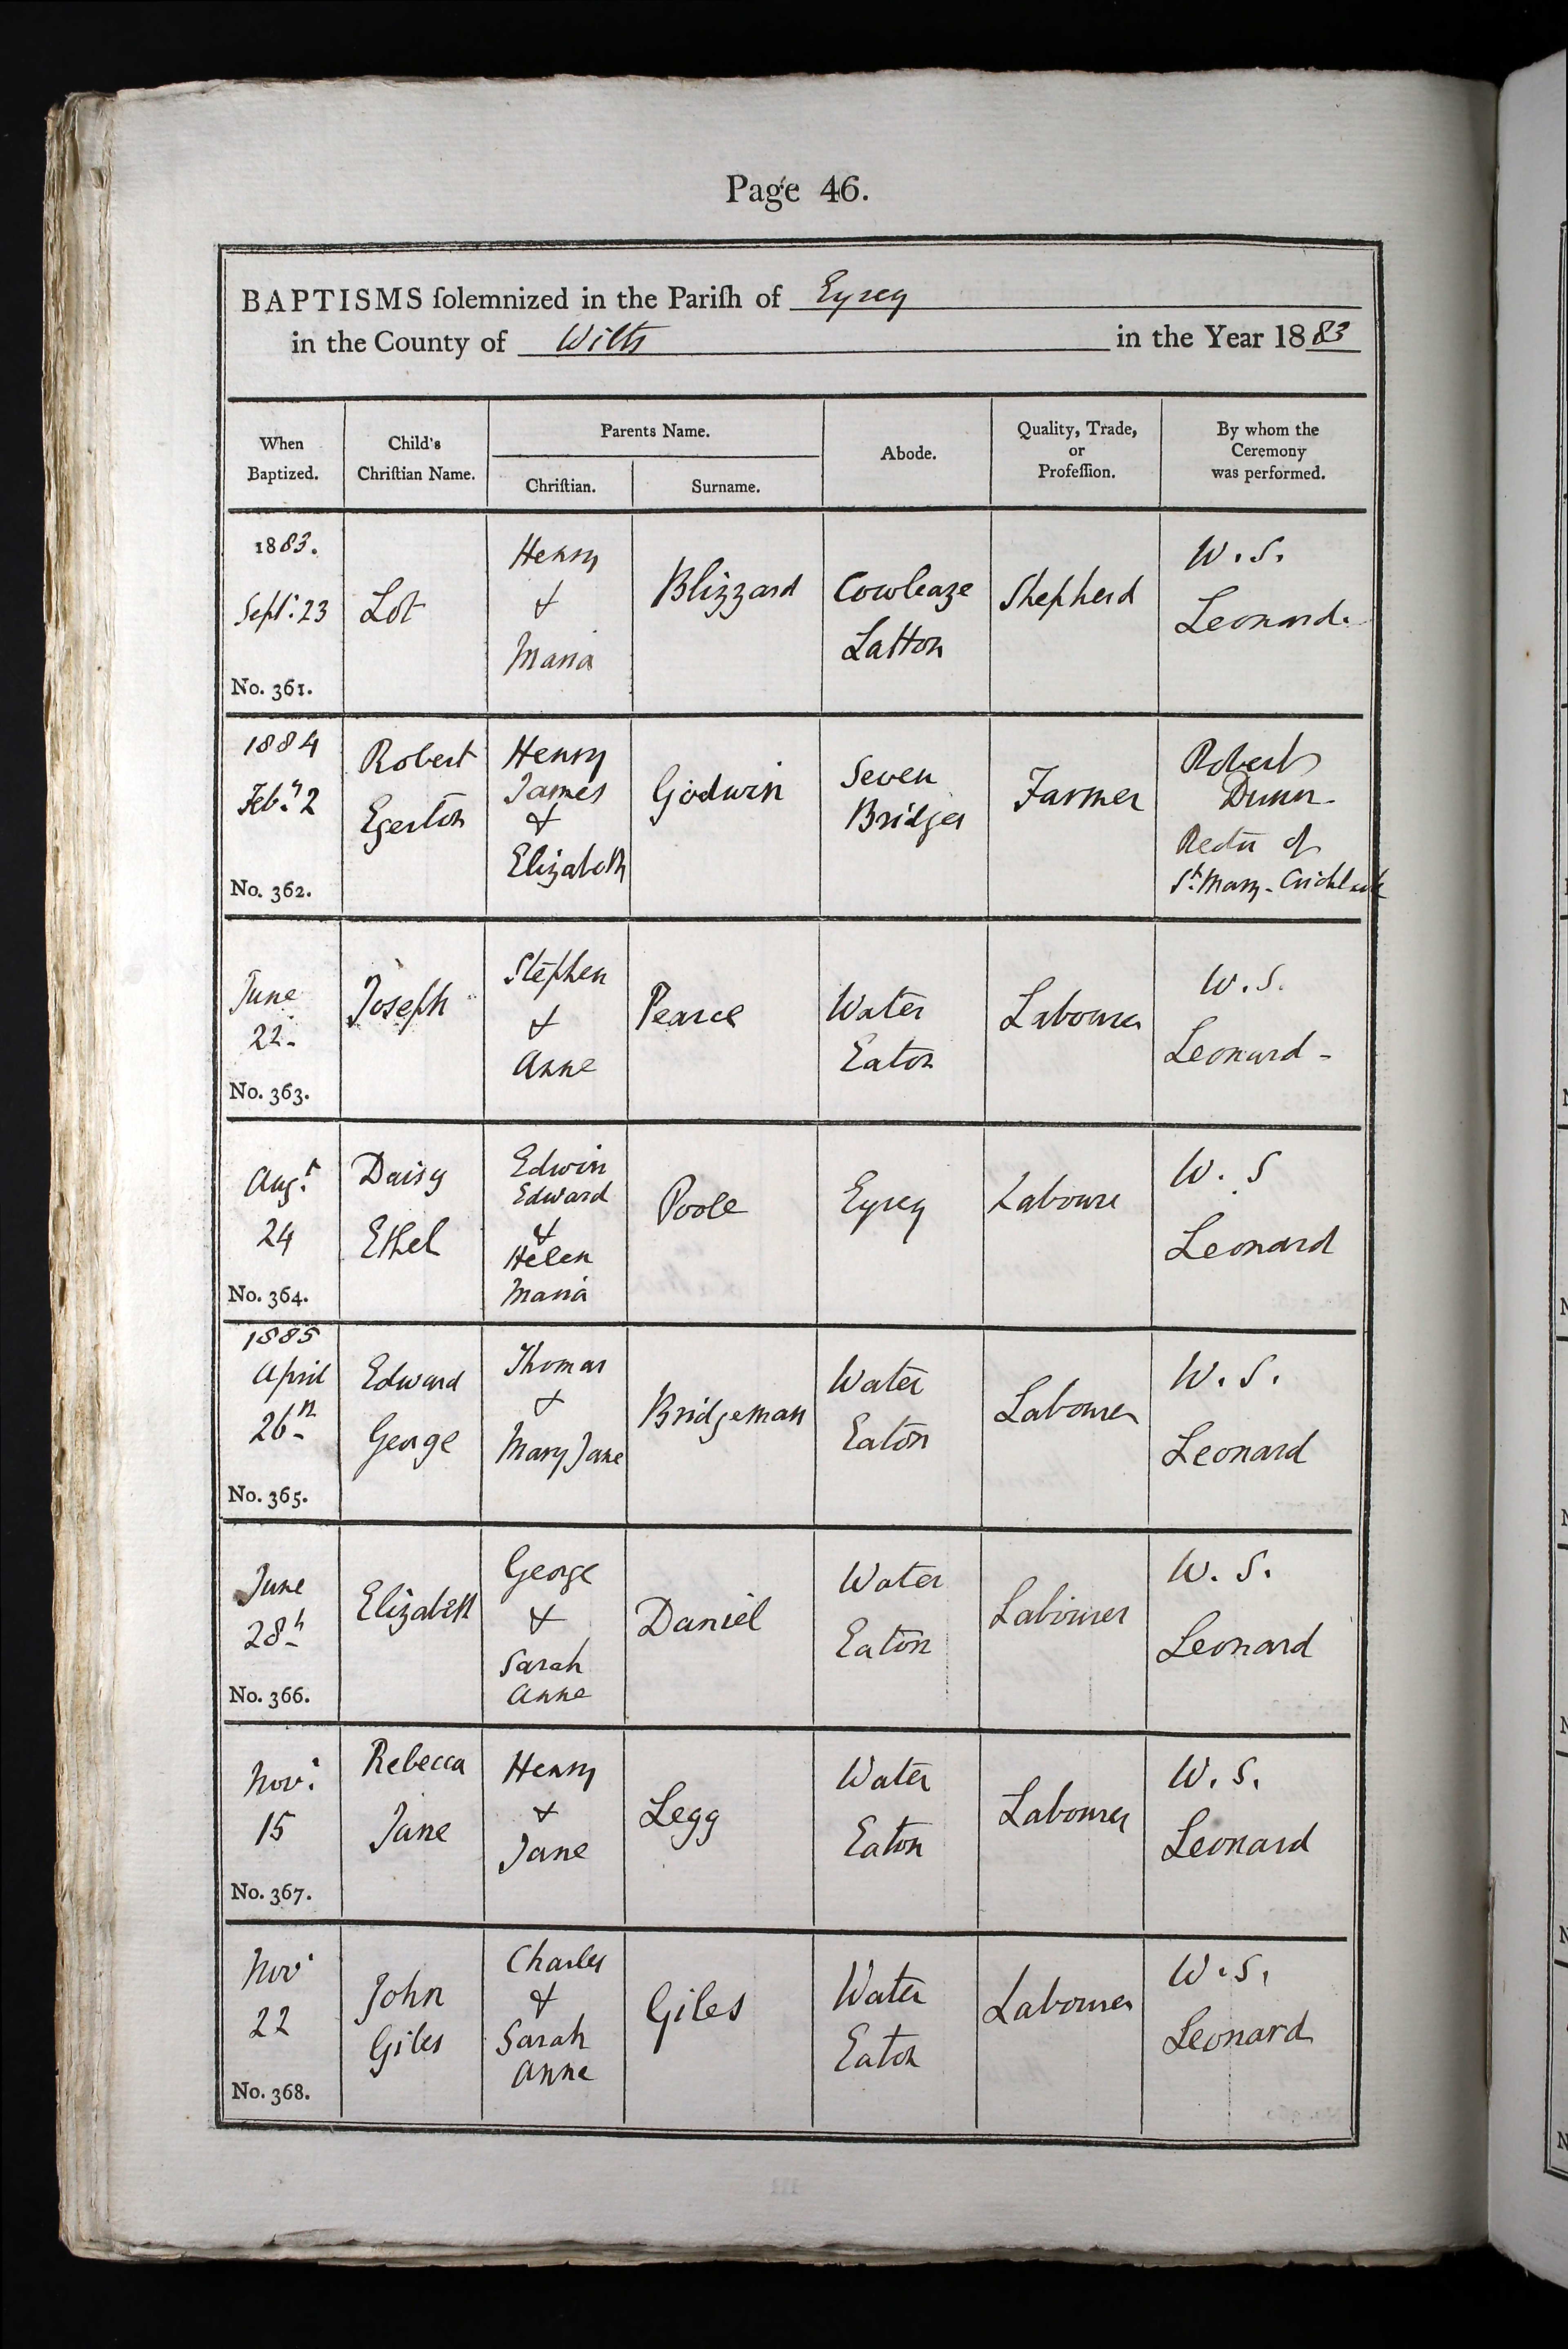 Page 46.
BAPTISMS ſolemnized in the Pariſh of Eysey
in the County of Wilts in the Year 1883
When Baptized.
Child's Chriſtian Name.
Parents Name.
Chriſtian.
Surname.
Abode.
Quality, Trade, or Profeſſion.
By whom the Ceremony was performed.
1883.
Sept. 23
No. 361.
Lot
Henry
&
Maria
Blizzard
Cowleaze
Latton
Shepherd
W. S.
Leonard.
1884
Feby 2
No. 362.
Robert
Egerton
Henry
James
&
Elizabeth
Godwin
Seven
Bridges
Farmer
Robert
Dunn
Rector of
St. Mary. Cricklade
June
22
No. 363.
Joseph
Stephen
&
Anne
Pearce
Water
Eaton
Labourer
W. S.
Leonard -
Augt
24
No. 364.
Daisy
Ethel
Edwin
Edward
&
Helen
Maria
Poole
Eysey
Labourer
W. S
Leonard
1885
April
26th
No. 365.
Edward
George
Thomas
&
Mary Jane
Bridgeman
Water
Eaton
Labourer
W. S.
Leonard
June
28th
No. 366.
Elizabeth
George
&
Sarah
Anne
Daniel
Water
Eaton
Labourer
W. S.
Leonard
Novr
15
No. 367.
Rebecca
Jane
Henry
&
Jane
Legg
Water
Eaton
Labourer
W. S.
Leonard
Novr
22
No. 368.
John
Giles
Charles
&
Sarah
Anne
Giles
Water
Eaton
Labourer
W. S.
Leonard